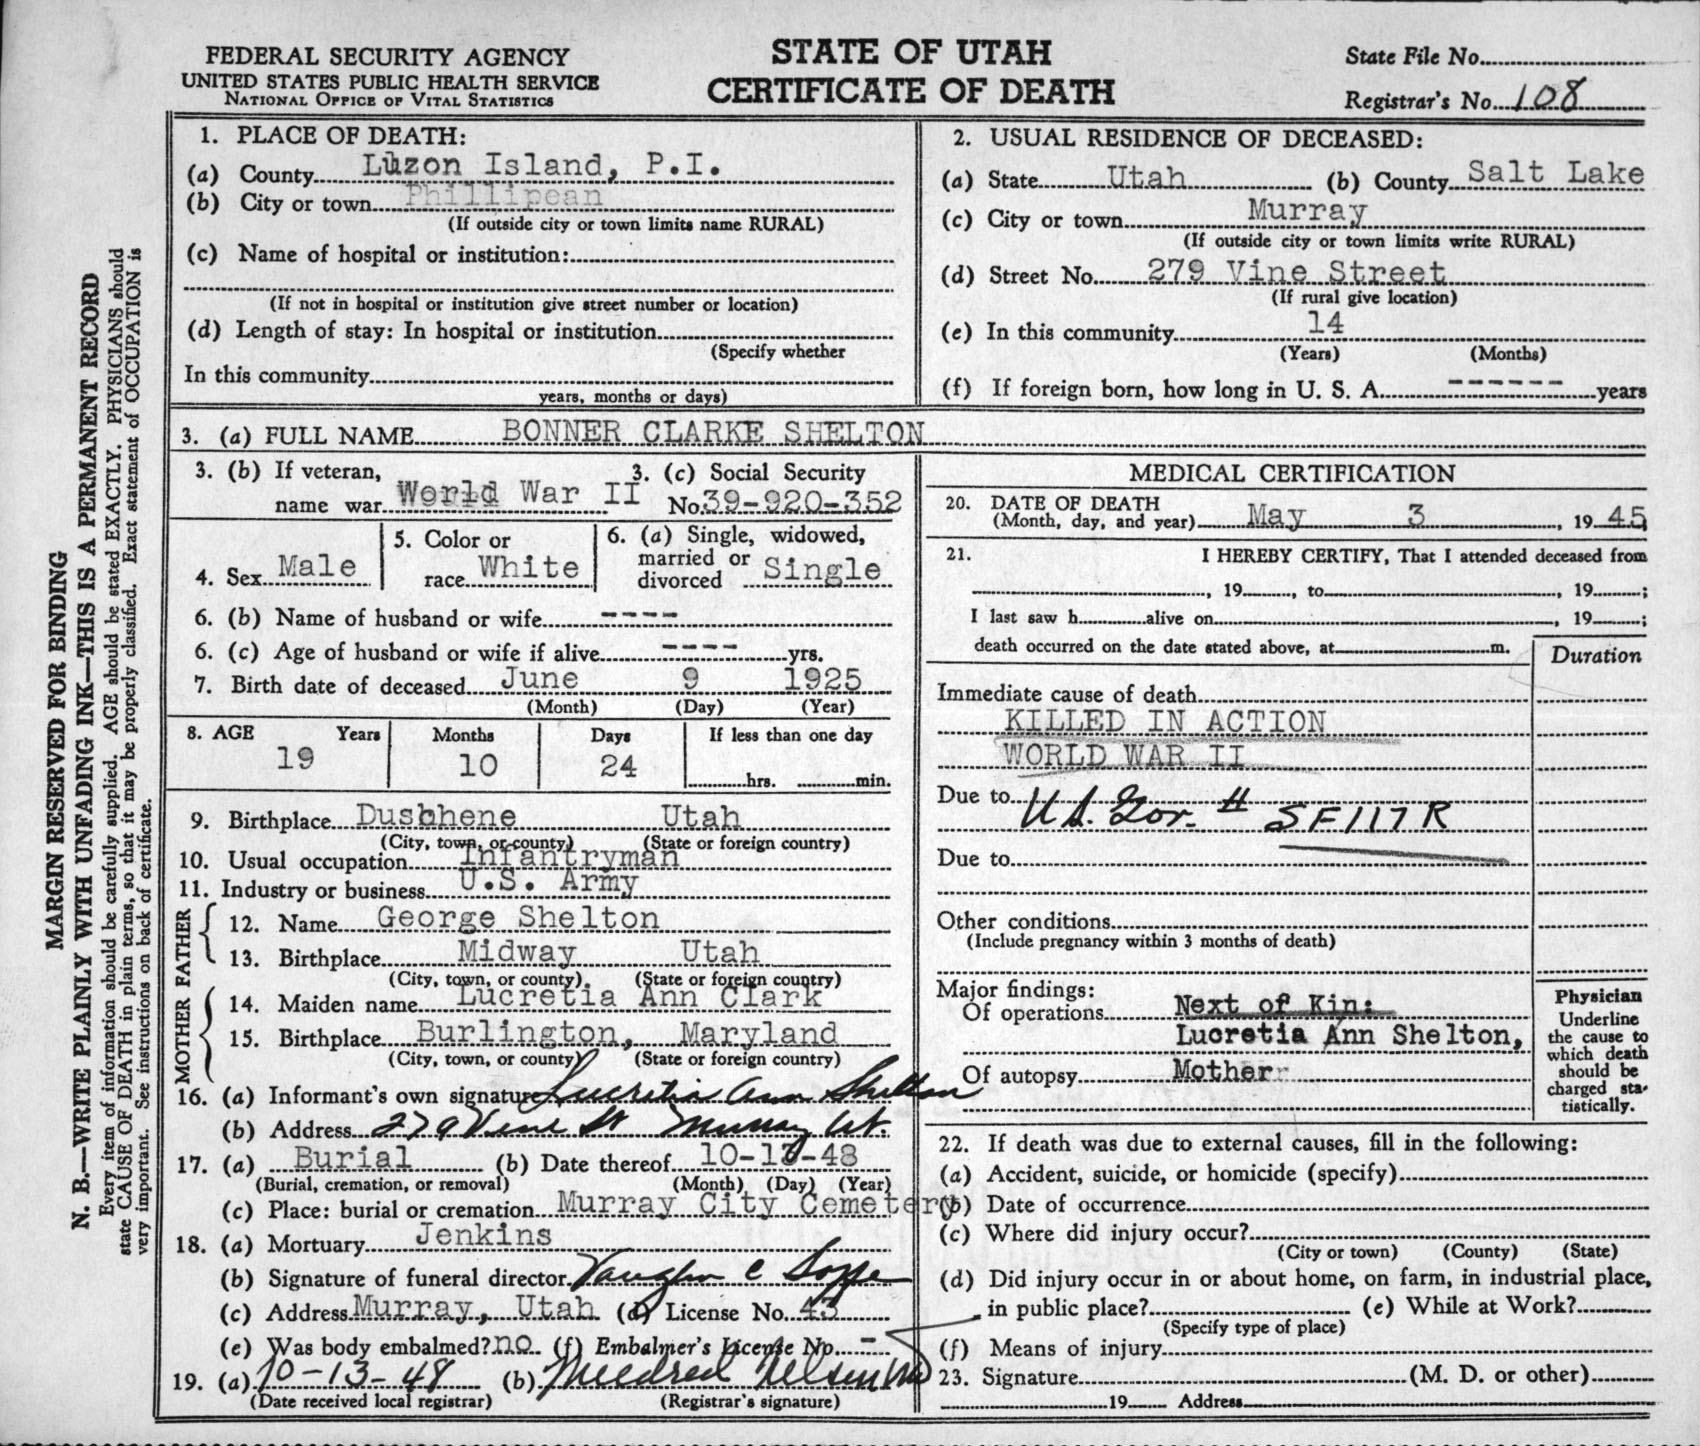 FEDERAL SECURITY AGENCY
UNITED STATES PUBLIC HEALTH SERVICE
NATIONAL OFFICE OF VITAL STATISTICS
STATE OF UTAH
CERTIFICATE OF DEATH
State File No.
Registrar's No. 108
MARGIN RESERVED FOR BINDING
N. B.—WRITE PLAINLY WITH UNFADING INK—THIS IS A PERMANENT RECORD
Every item of information should be carefully supplied. AGE should be stated EXACTLY. PHYSICIANS should
state CAUSE OF DEATH in plain terms, so that it may be properly classified. Exact statement of OCCUPATION is
very important. See instructions on back of certificate.
1. PLACE OF DEATH:
(a) County Luzon Island, P.I.
(b) City or town Phillipean
(If outside city or town limits name RURAL)
(c) Name of hospital or institution:
(If not in hospital or institution give street number or location)
(d) Length of stay: In hospital or institution
(Specify whether
In this community
years, months or days)
2. USUAL RESIDENCE OF DECEASED:
(a) State Utah (b) County Salt Lake
(c) City or town Murray
(If outside city or town limits write RURAL)
(d) Street No. 279 Vine Street
(If rural give location)
(e) In this community 14
(Years) (Months)
(f) If foreign born, how long in U. S. A. ------ years
3. (a) FULL NAME BONNER CLARKE SHELTON
3. (b) If veteran,
name war World War II
3. (c) Social Security
No. 39-920-352
4. Sex Male
5. Color or
race White
6. (a) Single, widowed,
married or
divorced Single
6. (b) Name of husband or wife ----
6. (c) Age of husband or wife if alive ---- yrs.
7. Birth date of deceased June 9 1925
(Month) (Day) (Year)
8. AGE Years Months Days If less than one day
19 10 24 hrs. min.
9. Birthplace Dushhene Utah
(City, town, or county) (State or foreign country)
10. Usual occupation Infantryman
11. Industry or business U.S. Army
FATHER
12. Name George Shelton
13. Birthplace Midway Utah
(City, town, or county) (State or foreign country)
MOTHER
14. Maiden name Lucretia Ann Clark
15. Birthplace Burlington, Maryland
(City, town, or county) (State or foreign country)
16. (a) Informant's own signature Lucretia Ann Shelton
(b) Address 279 Vine St Murray Ut.
17. (a) Burial (b) Date thereof 10-13-48
(Burial, cremation, or removal) (Month) (Day) (Year)
(c) Place: burial or cremation Murray City Cemetery
18. (a) Mortuary Jenkins
(b) Signature of funeral director Vaughn C
(c) Address Murray, Utah (d) License No. 43
(e) Was body embalmed? no (f) Embalmer's License No. -
19. (a) 10-13-48 (b) Mildred Nelson
(Date received local registrar) (Registrar's signature)
MEDICAL CERTIFICATION
20. DATE OF DEATH
(Month, day, and year) May 3, 1945
21. I HEREBY CERTIFY, That I attended deceased from
, 19 , to , 19 ;
I last saw h alive on , 19 ;
death occurred on the date stated above, at m.
Duration
Immediate cause of death
KILLED IN ACTION
WORLD WAR II
Due to U.S. Gov. # SF117R
Due to
Other conditions
(Include pregnancy within 3 months of death)
Major findings:
Of operations Next of Kin:
Lucretia Ann Shelton,
Of autopsy Mother
Physician
Underline
the cause to
which death
should be
charged sta-
tistically.
22. If death was due to external causes, fill in the following:
(a) Accident, suicide, or homicide (specify)
(b) Date of occurrence
(c) Where did injury occur?
(City or town) (County) (State)
(d) Did injury occur in or about home, on farm, in industrial place,
in public place? (e) While at Work?
(Specify type of place)
(f) Means of injury
23. Signature (M. D. or other)
19 Address